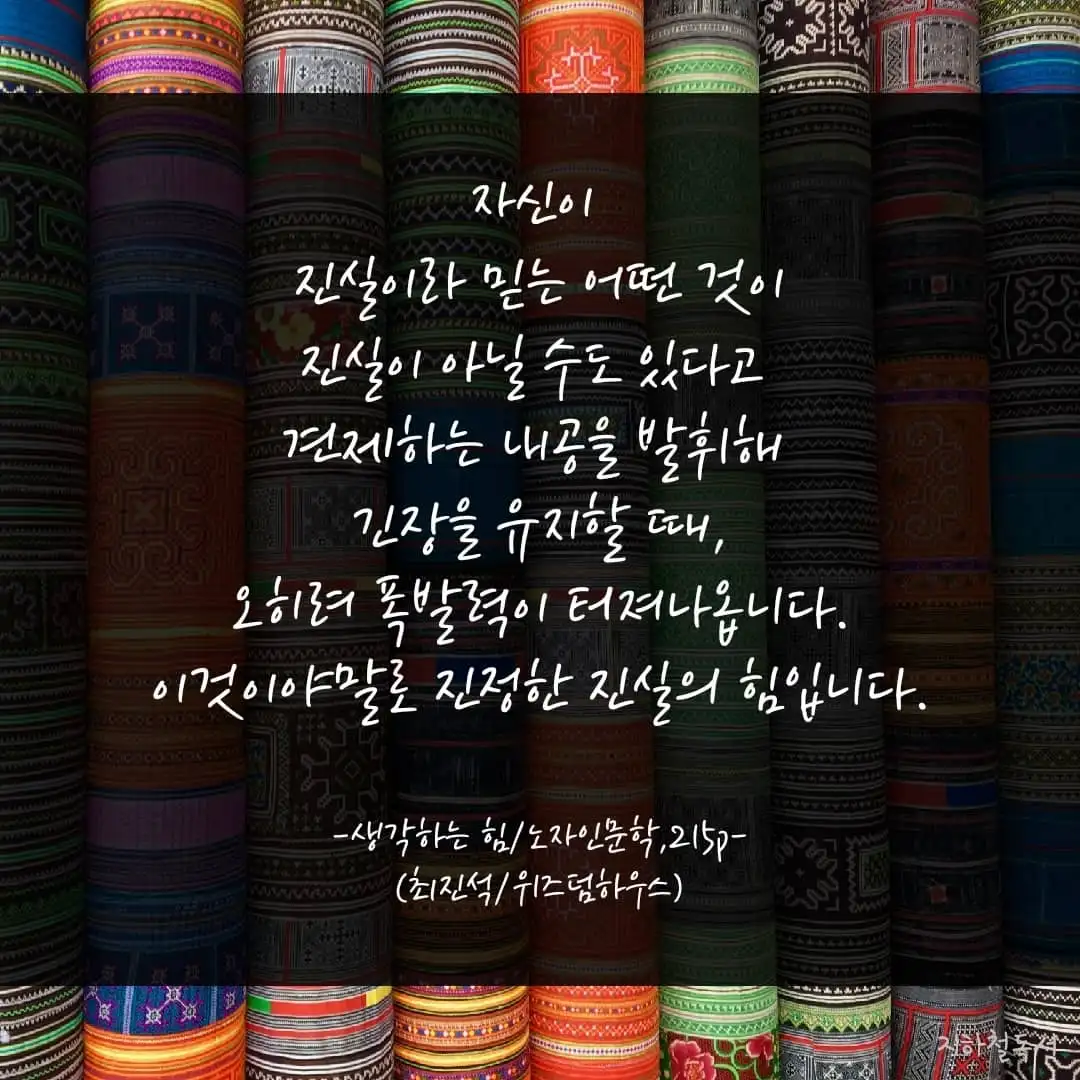 자신이
진실이라 믿는 어떤 것이
진실이 아닐 수도 있다고
견제하는 내공을 발휘해
긴장을 유지할 때,
오히려 폭발력이 터져나옵니다.
이것이야말로 진정한 진실의 힘입니다.
-생각하는 힘/노자인문학,215p-
(최진석/위즈덤하우스)
지하철독서